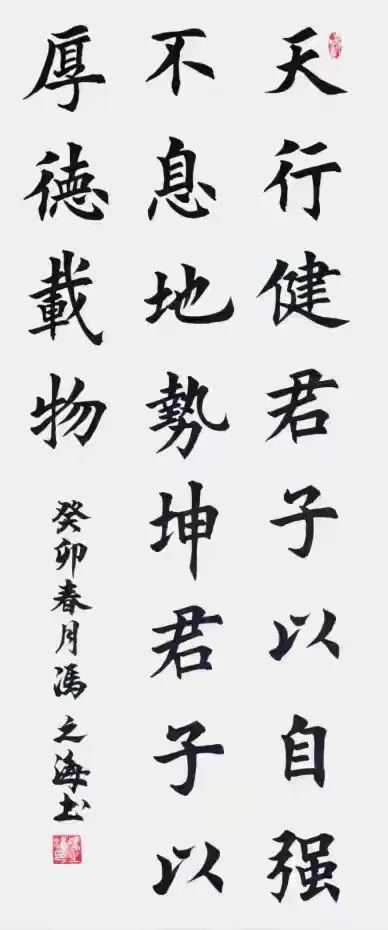 天行健君子以自强
不息地勢坤君子以
厚德載物
癸卯春月馮之海书